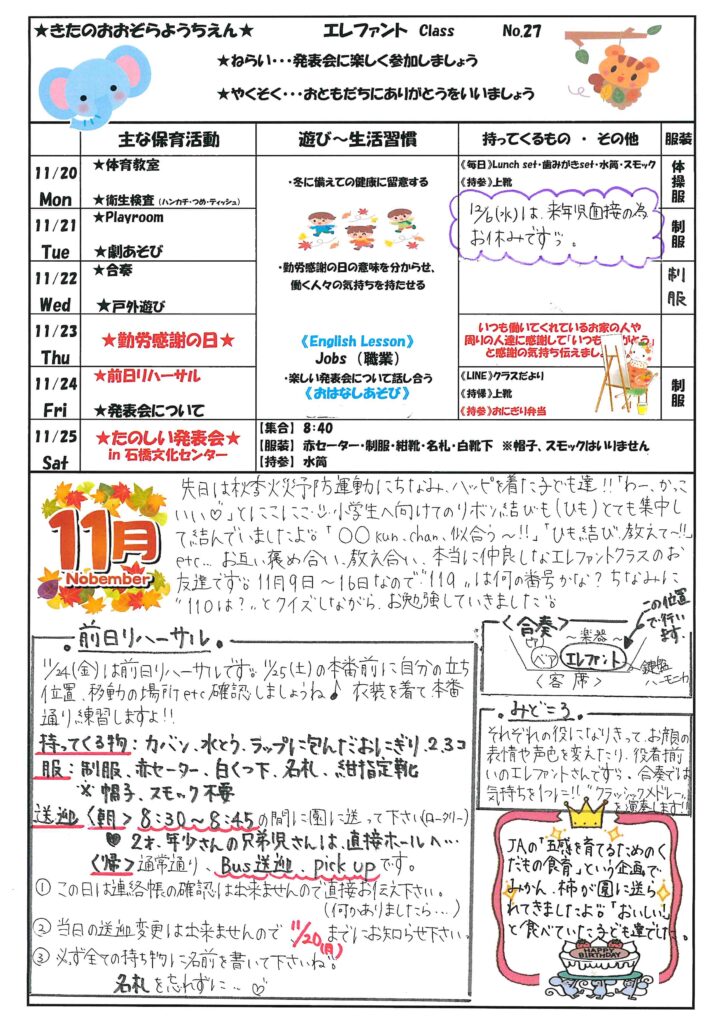 ★きたのおおぞらようちえん★ エレファント Class No.27
★ねらい・・・発表会に楽しく参加しましょう
★やくそく・・・おともだちにありがとうをいいましょう
主な保育活動 遊び～生活習慣 持ってくるもの ・ その他 服装
11/20 Mon
★体育教室
★衛生検査(ハンカチ・つめ・ティッシュ)
・冬に備えての健康に留意する
《毎日》Lunch set・歯みがきset・水筒・スモック
《持参》上靴
体操服
12/6(水)は、来年児面接の為
お休みです。
11/21 Tue
★Playroom
★劇あそび
制服
11/22 Wed
★合奏
★戸外遊び
・勤労感謝の日の意味を分からせ、
働く人々の気持ちを持たせる
制服
11/23 Thu
★勤労感謝の日★
《English Lesson》
Jobs（職業）
いつも働いてくれているお家の人や
周りの人達に感謝して「いつも
と感謝の気持ち伝えまし
11/24 Fri
★前日リハーサル
★発表会について
・楽しい発表会について話し合う
《おはなしあそび》
《LINE》クラスだより
《持帰》上靴
《持参》おにぎり弁当
制服
11/25 Sat
★たのしい発表会★
in 石橋文化センター
【集合】 8:40
【服装】 赤セーター・制服・紺靴・名札・白靴下 ※帽子、スモックはいりません
【持参】 水筒
11月
Nobember
先日は秋季火災予防運動にちなみ、ハッピを着た子ども達!!「わー、かっこ
いい♡」とにこにこ 小学生へ向けてのリボン結びも(ひも)とても集中し
て結んでいましたよ。「〇〇kun.chan、似合う～!!」「ひも結び教えて～!!」
etc… お互い褒め合い、教え合い、本当に仲良しなエレファントクラスのお
友達です。11月9日～16日なので"119"は何の番号かな？ちなみに
"110は？"とクイズしながら、お勉強していきました。
・前日リハーサル・
11/24(金)は前日リハーサルです。11/25(土)の本番前に自分の立ち
位置、移動の場所etc確認しましょうね♪ 衣装を着て本番
通り練習しますよ!!
持ってくる物：カバン、水とう、ラップに包んだおにぎり2.3コ
服：制服、赤セーター、白くつ下、名札、紺指定靴
※帽子、スモック不要
送迎〈朝〉8:30～8:45の間に園に送って下さい(ロータリー)
♥2才、年少さんの兄弟児さんは、直接ホールへ…
〈帰〉通常通り、Bus送迎、Pick upです。
① この日は連絡帳の確認は出来ませんので直接お伝え下さい。
(何かありましたら…)
② 当日の送迎変更は出来ませんので 11/20(月) までにお知らせ下さい。
③ 必ず全ての持ち物に名前を書いて下さいね。
名札を忘れずに…♡
〈合奏〉
この位置
で行い
ます。
～楽器～
エレファント
鍵盤
ハーモニカ
〈客席〉
・みどころ・
それぞれの役になりきって、お顔の
表情や声色を変えたり、役者揃
いのエレファントさんです。合奏では
気持ちを1つに!!"クラッシックメドレー"
を演奏します!!
JAの「五感を育てるためのく
だもの食育」という企画で、
みかん、柿が園に送ら
れてきましたよ。「おいしい」
と食べていた子ども達でした。
HAPPY
BIRTHDAY